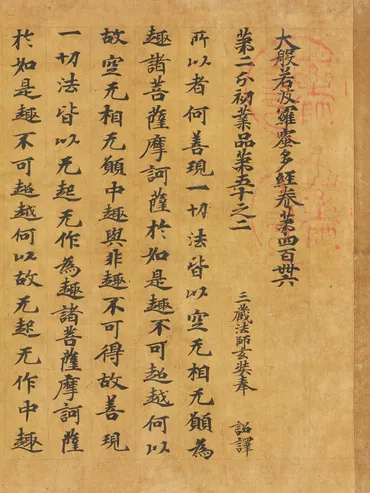 大般若波羅蜜多經卷第四百卌六
第二分初業品第五十之二
三藏法師玄奘奉 詔譯
所以者何善現一切法皆以空无相无願為
趣諸菩薩摩訶薩於如是趣不可超越何以
故空无相无願中趣與非趣不可得故善現
一切法皆以无起无作為趣諸菩薩摩訶薩
於如是趣不可超越何以故无起无作中趣